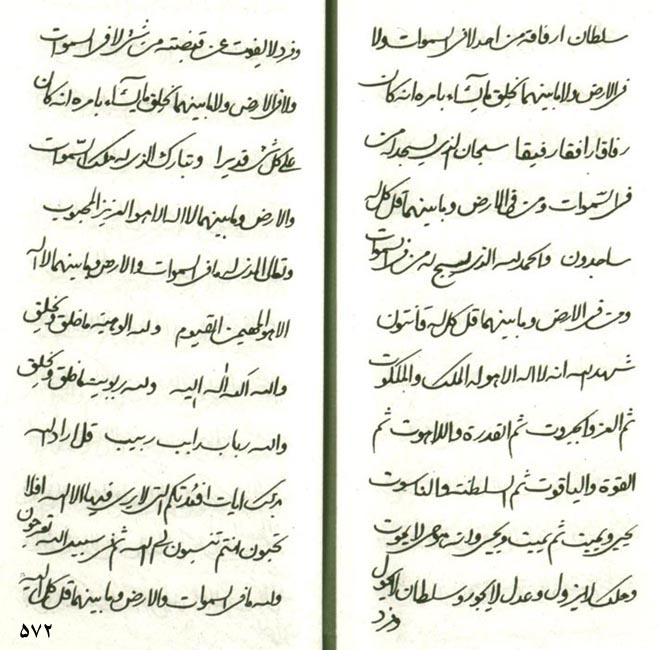 سلطان ارفاقه من احد لا فی السموات ولا
فی الارض ولا ما بینهما یخلق ما یشاء بامره انه کان
رفاقا رافقا رفیقا سبحان الذی یسجد له من
فی السموات ومن فی الارض وما بینهما قل کل له
ساجدون والحمد لله الذی یسبح له من فی السموات
ومن فی الارض وما بینهما قل کل له قانتون
شهد الله انه لا اله الا هو له الملک والملکوت
ثم العز والجبروت ثم القدرة واللاهوت ثم
القوة والیاقوت ثم السلطنة والناسوت
یحیی ویمیت ثم یمیت ویحیی وانه هو حی لا یموت
وملک لا یزول وعدل لا یجور وسلطان لا یحول
وفرد
وفرد لا یفوت عن قبضته من شیء لا فی السموات
ولا فی الارض ولا ما بینهما یخلق ما یشاء بامره انه کان
علی کل شیء قدیرا وتبارک الذی له ملک السموات
والارض وما بینهما لا اله الا هو العزیز المحبوب
وتعالی الذی له ما فی السموات والارض وما بینهما لا اله
الا هو المهیمن القیوم ولله الوهیة ما خلق ویخلق
والله اله الیه ولله ربوبیت ما خلق ویخلق
والله رباب ربیب قل اراد الله
ایات افئدتکم التی لا یری فیها الا الله افلا
تحبون انتم تنسبون الی الله ثم فی سبیل الله تفرحون
ولله ما فی السموات والارض وما بینهما قل کل له
۵۷۲